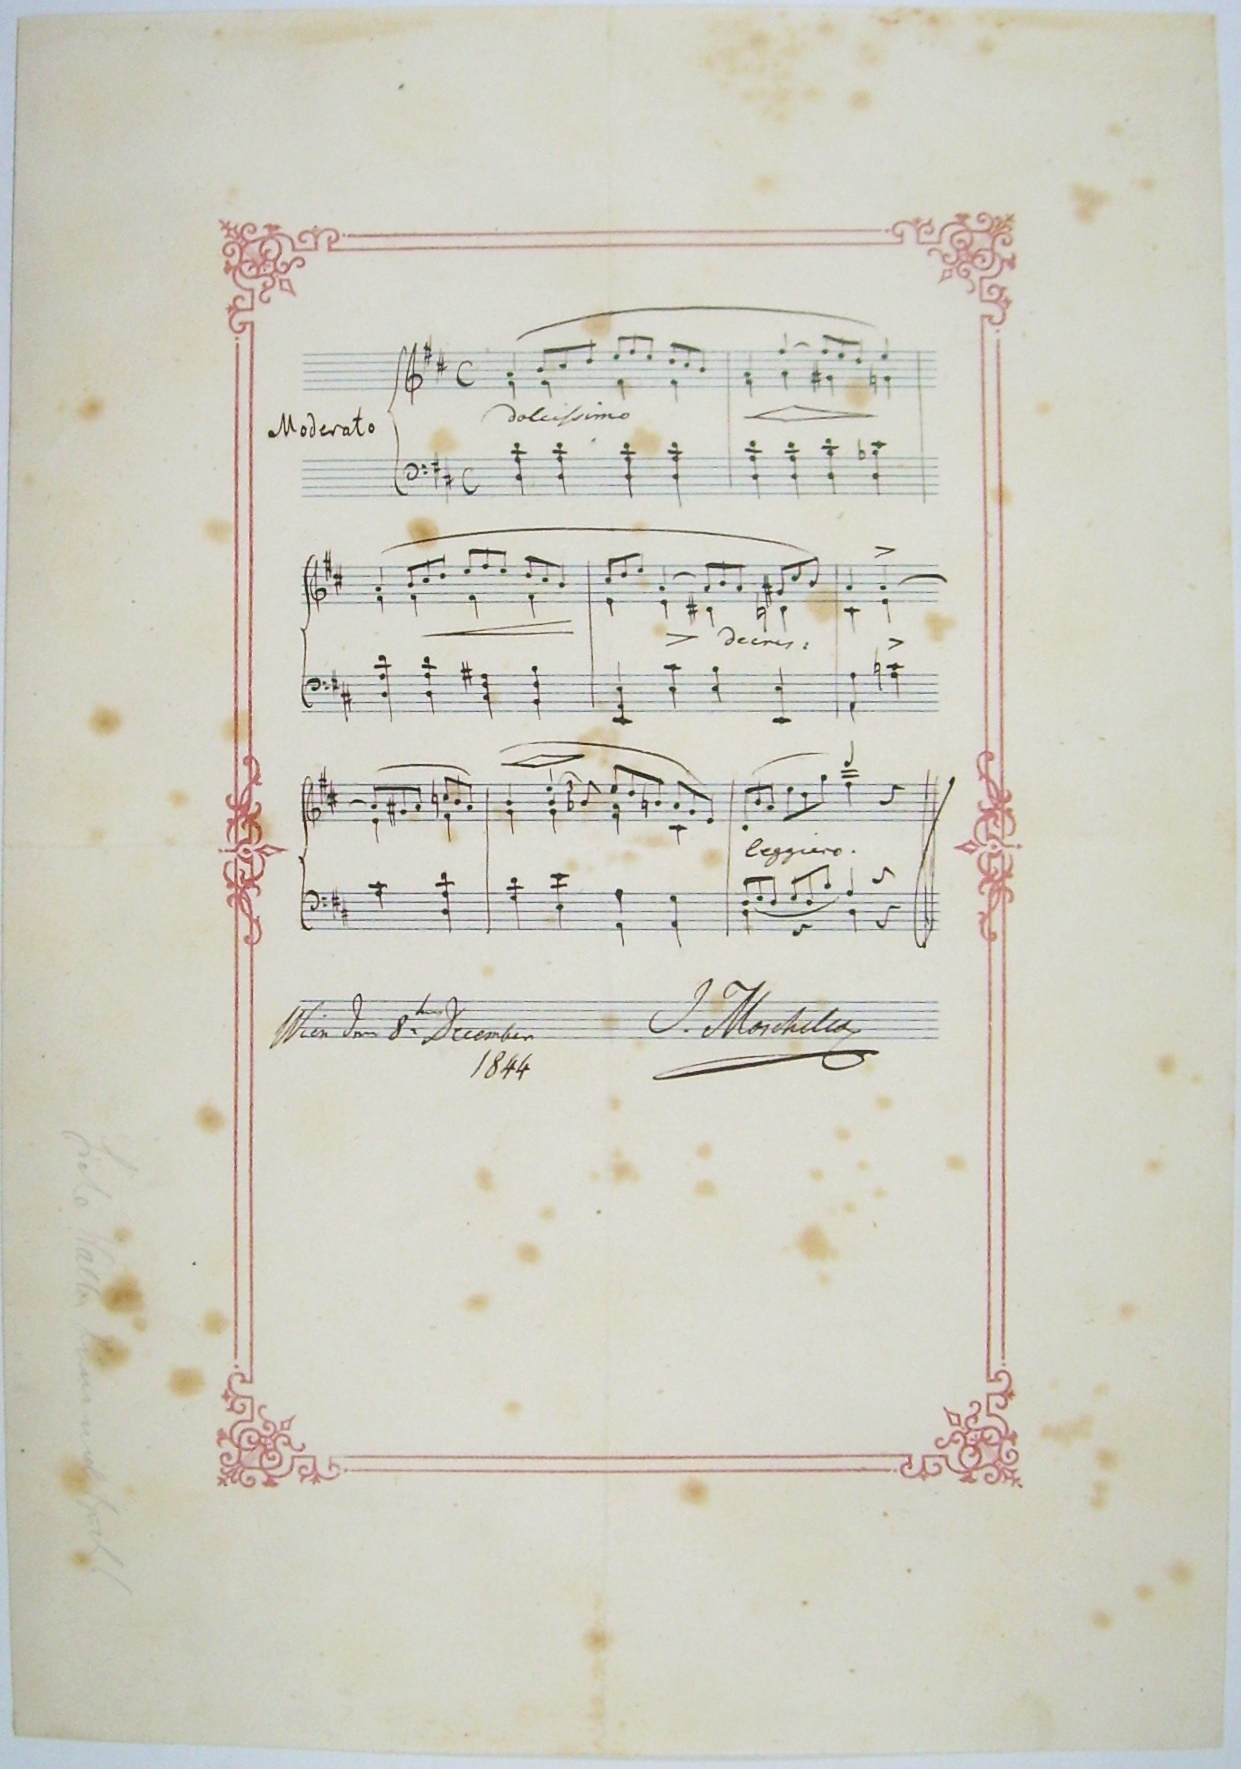 Moderato
dolcissimo
decres:
leggiero.
Wien den 8ten December
1844
J. Moscheles